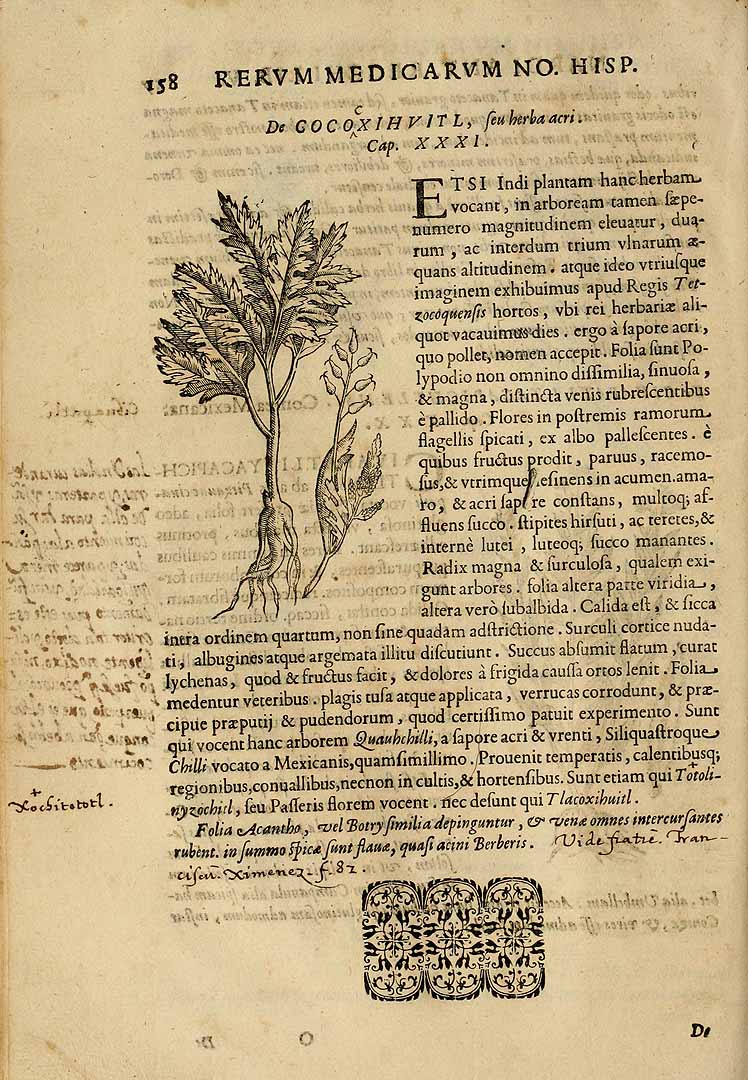 158 RERVM MEDICARVM NO. HISP.
De COCOXIHVITL, seu herba acri.
C
^
Cap. XXXI.
ETSI Indi plantam hanc herbam
vocant, in arboream tamen sæpe-
numero magnitudinem eleuatur, dua-
rum, ac interdum trium vlnarum æ-
quans altitudinem. atque ideo vtriusque
imaginem exhibuimus apud Regis Tet-
zocoquensis hortos, vbi rei herbariæ ali-
quot vacauimus dies. ergo à sapore acri,
quo pollet, nomen accepit. Folia sunt Po-
lypodio non omnino dissimilia, sinuosa,
& magna, distincta venis rubrescentibus
è pallido. Flores in postremis ramorum
flagellis spicati, ex albo pallescentes. è
quibus fructus prodit, paruus, racemo-
sus, & vtrimque desinens in acumen. ama-
ro, & acri sapore constans, multoq; af-
fluens succo. stipites hirsuti, ac teretes, &
internè lutei, luteoq; succo manantes.
Radix magna & surculosa, qualem exi-
gunt arbores. folia altera parte viridia,
altera verò subalbida. Calida est, & sicca
intra ordinem quartum, non sine quadam adstrictione. Surculi cortice nuda-
ti, albugines atque argemata illitu discutiunt. Succus absumit flatum, curat
lychenas, quod & fructus facit, & dolores à frigida caussa ortos lenit. Folia
medentur veteribus. plagis tusa atque applicata, verrucas corrodunt, & præ-
cipue præputij & pudendorum, quod certissimo patuit experimento. Sunt
qui vocent hanc arborem Quauhchilli, a sapore acri & vrenti, Siliquastroque
Chilli vocato a Mexicanis, quam simillimo. Prouenit temperatis, calentibusq;
regionibus, conuallibus, necnon in cultis, & hortensibus. Sunt etiam qui Totoli-
nyzochitl, seu Passeris florem vocent. nec desunt qui Tlacoxihuitl.
+
Xochitototl.
Folia Acantho, vel Botry similia depinguntur, & venæ omnes intercursantes
rubent. in summo spicæ sunt flauæ, quasi acini Berberis. Vide fratrē. Fran-
ciscū. Ximenez. f. 82.
De